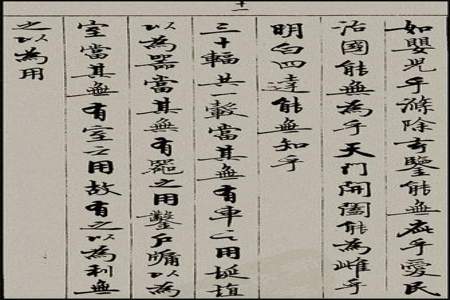 如嬰兒乎滌除玄鑒能無疵乎愛民
治國能無為乎天門開闔能為雌乎
明白四達能無知乎
十一
三十輻共一轂當其無有車之用埏埴
以為器當其無有器之用鑿戶牖以為
室當其無有室之用故有之以為利無
之以為用